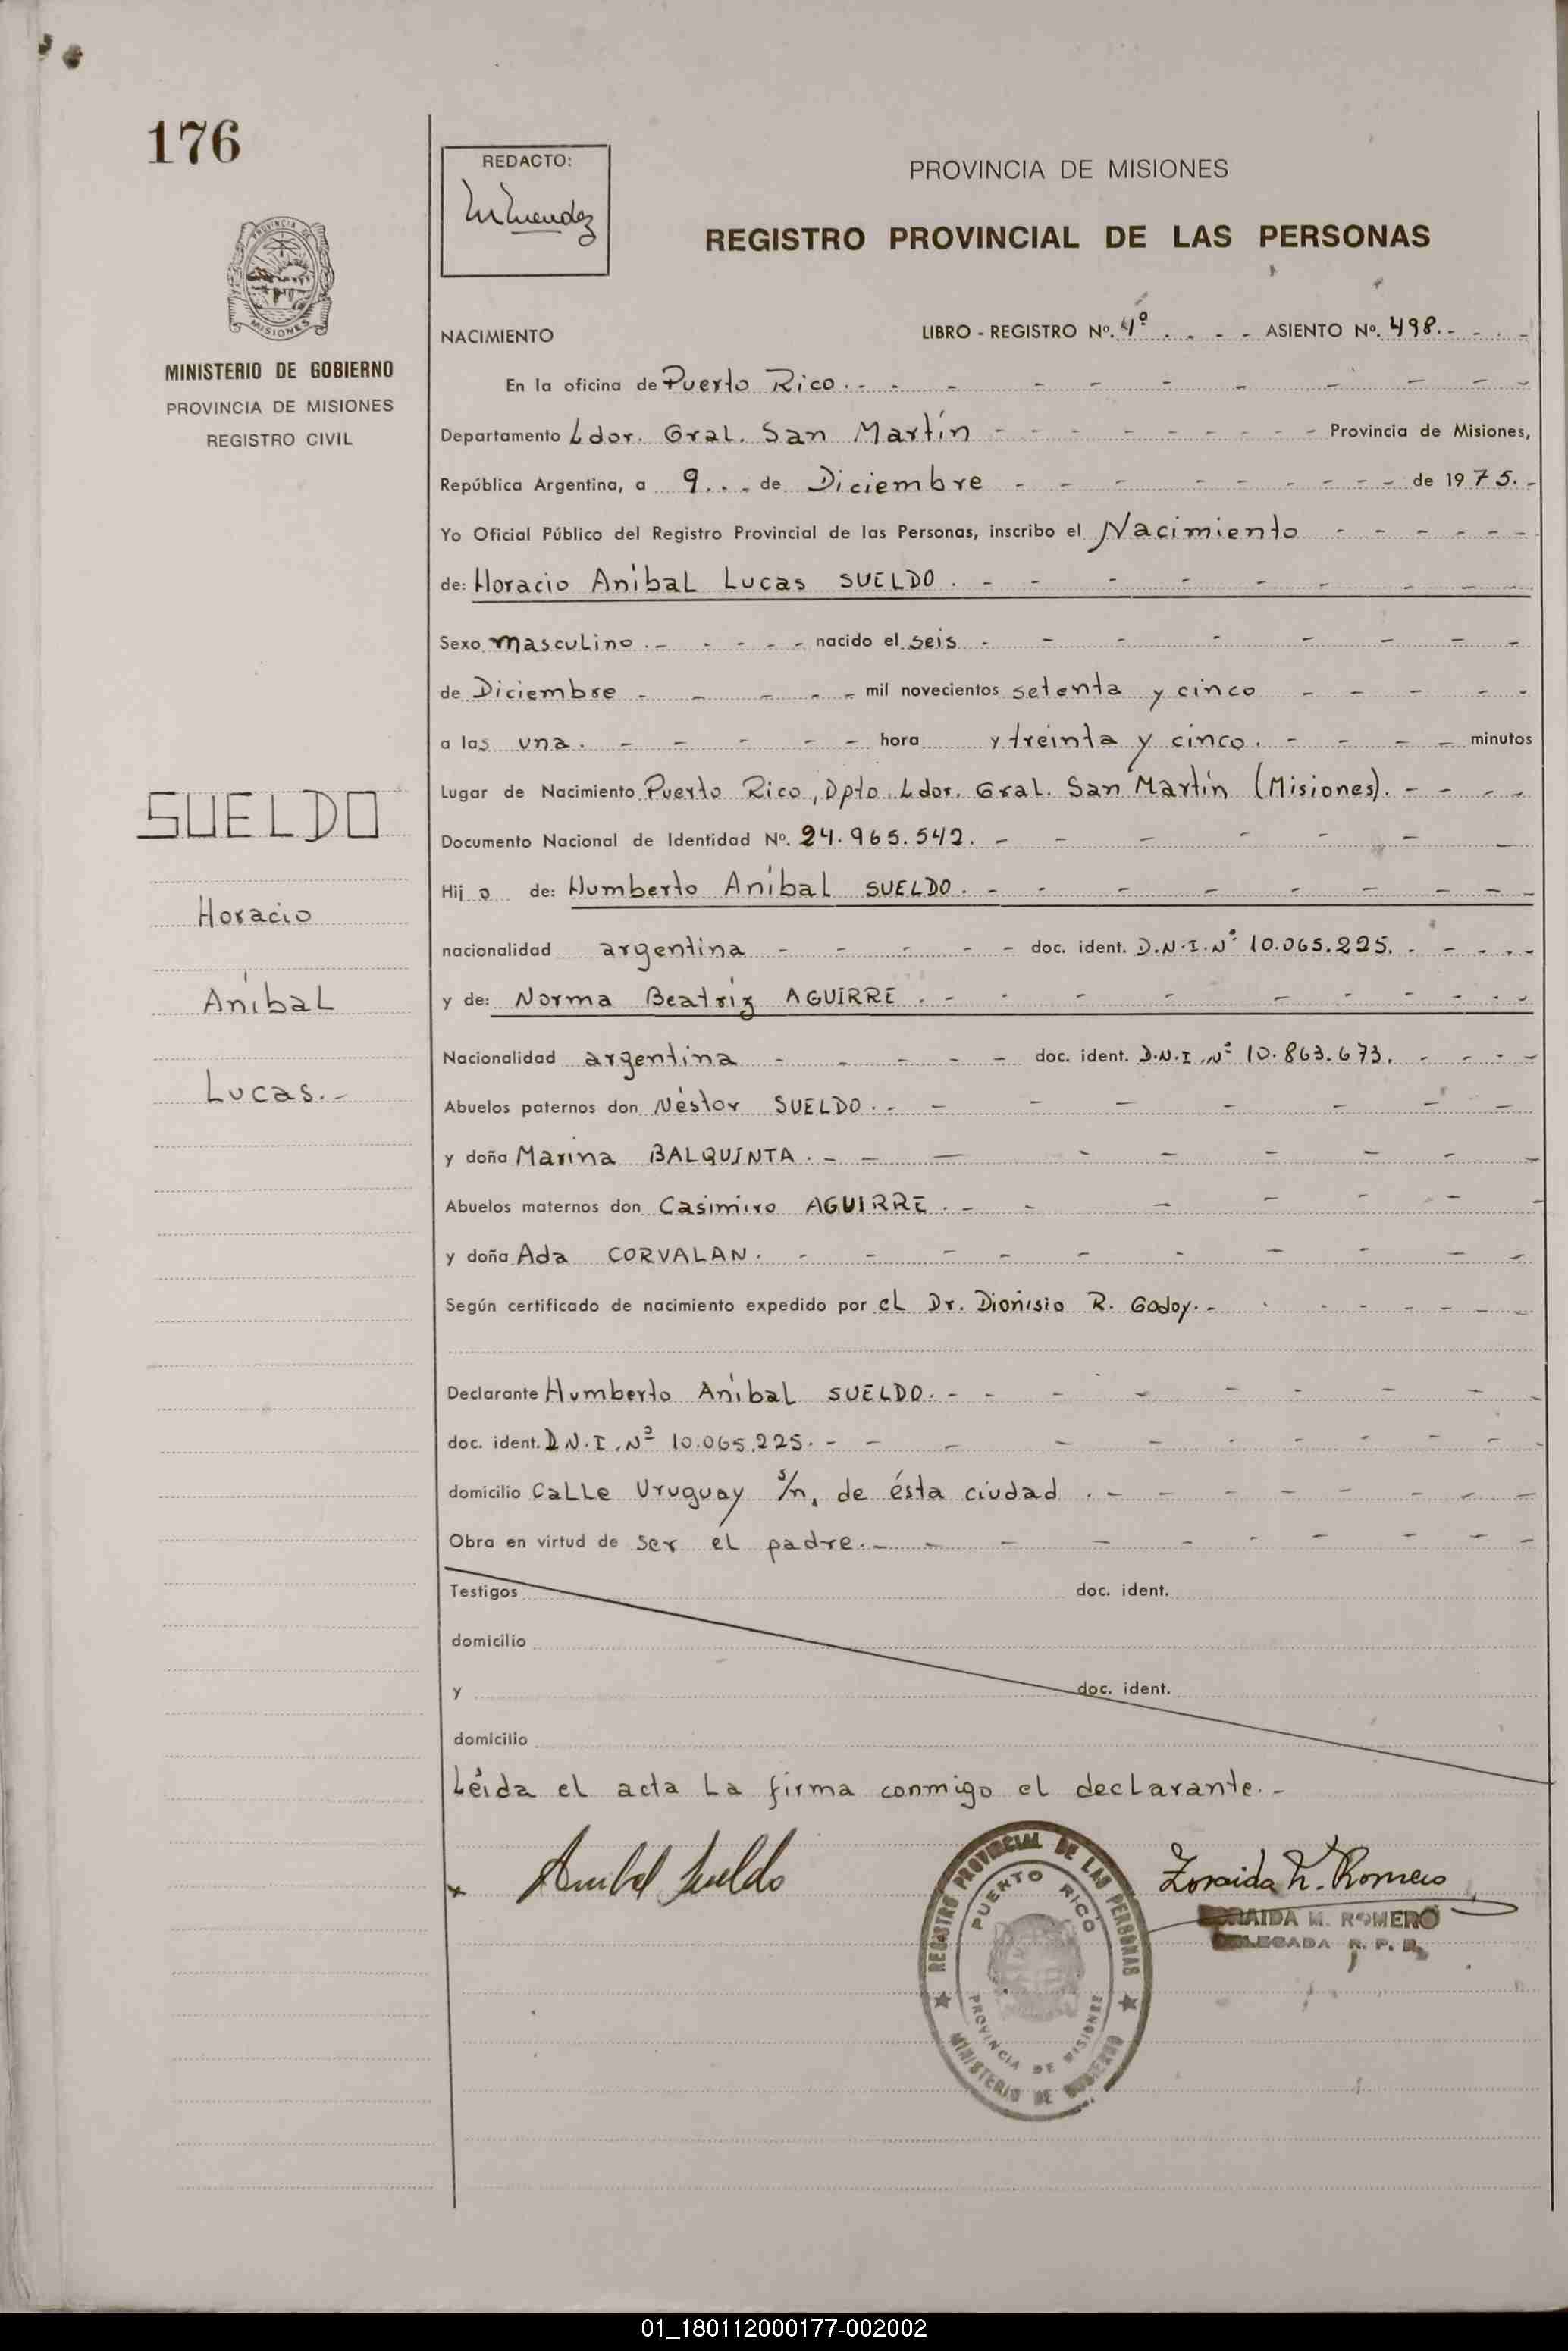 176
REDACTO:
PROVINCIA DE MISIONES
REGISTRO PROVINCIAL DE LAS PERSONAS
PROVINCIA DE MISIONES
MINISTERIO DE GOBIERNO
PROVINCIA DE MISIONES
REGISTRO CIVIL
NACIMIENTO LIBRO - REGISTRO Nº. 4º - - ASIENTO Nº. 498. - - -
En la oficina de Puerto Rico. - - - - - - - - - -
Departamento Ldor. Gral. San Martín - - - - - - - - - Provincia de Misiones,
República Argentina, a 9. . - de Diciembre - - - - - - - - - de 1975. -
Yo Oficial Público del Registro Provincial de las Personas, inscribo el Nacimiento - - - - - -
de: Horacio Aníbal Lucas SUELDO. - - - - - - - - -
Sexo masculino. - - - - - nacido el seis - - - - - - - -
de Diciembre - - - - - mil novecientos setenta y cinco - - - - -
a las una. - - - - - hora y treinta y cinco. - - - - minutos
Lugar de Nacimiento Puerto Rico, Dpto. Ldor. Gral. San Martín (Misiones). - - - -
Documento Nacional de Identidad Nº. 24.965.542. - - - - - - -
Hijo de: Humberto Aníbal SUELDO. - - - - - - - - -
nacionalidad argentina - - - - - doc. ident. D.N.I.Nº 10.065.225. - - - - -
y de: Norma Beatriz AGUIRRE. - - - - - - - - - -
Nacionalidad argentina - - - - - doc. ident. D.N.I.Nº 10.863.673. - - - -
Abuelos paternos don Néstor SUELDO. - - - - - - - -
y doña Marina BALQUINTA. - - - - - - - - -
Abuelos maternos don Casimiro AGUIRRE. - - - - - - -
y doña Ada CORVALAN. - - - - - - - - - -
Según certificado de nacimiento expedido por el Dr. Dionisio R. Godoy. - - - - - - -
Declarante Humberto Aníbal SUELDO. - - - - - - - - -
doc. ident. D.N.I.Nº 10.065.225. - - - - - - - - - -
domicilio Calle Uruguay s/n, de ésta ciudad. - - - - - - - -
Obra en virtud de ser el padre. - - - - - - - - -
Testigos doc. ident.
domicilio
y doc. ident.
domicilio
SUELDO
Horacio
Aníbal
Lucas.-
Leída el acta la firma conmigo el declarante. -
Anibal Sueldo
Zoraida M. Romero
ZORAIDA M. ROMERO
DELEGADA R. P. P.
REGISTRO PROVINCIAL DE LAS PERSONAS
PUERTO RICO
PROVINCIA DE MISIONES
MINISTERIO DE GOBIERNO
01_180112000177-002002